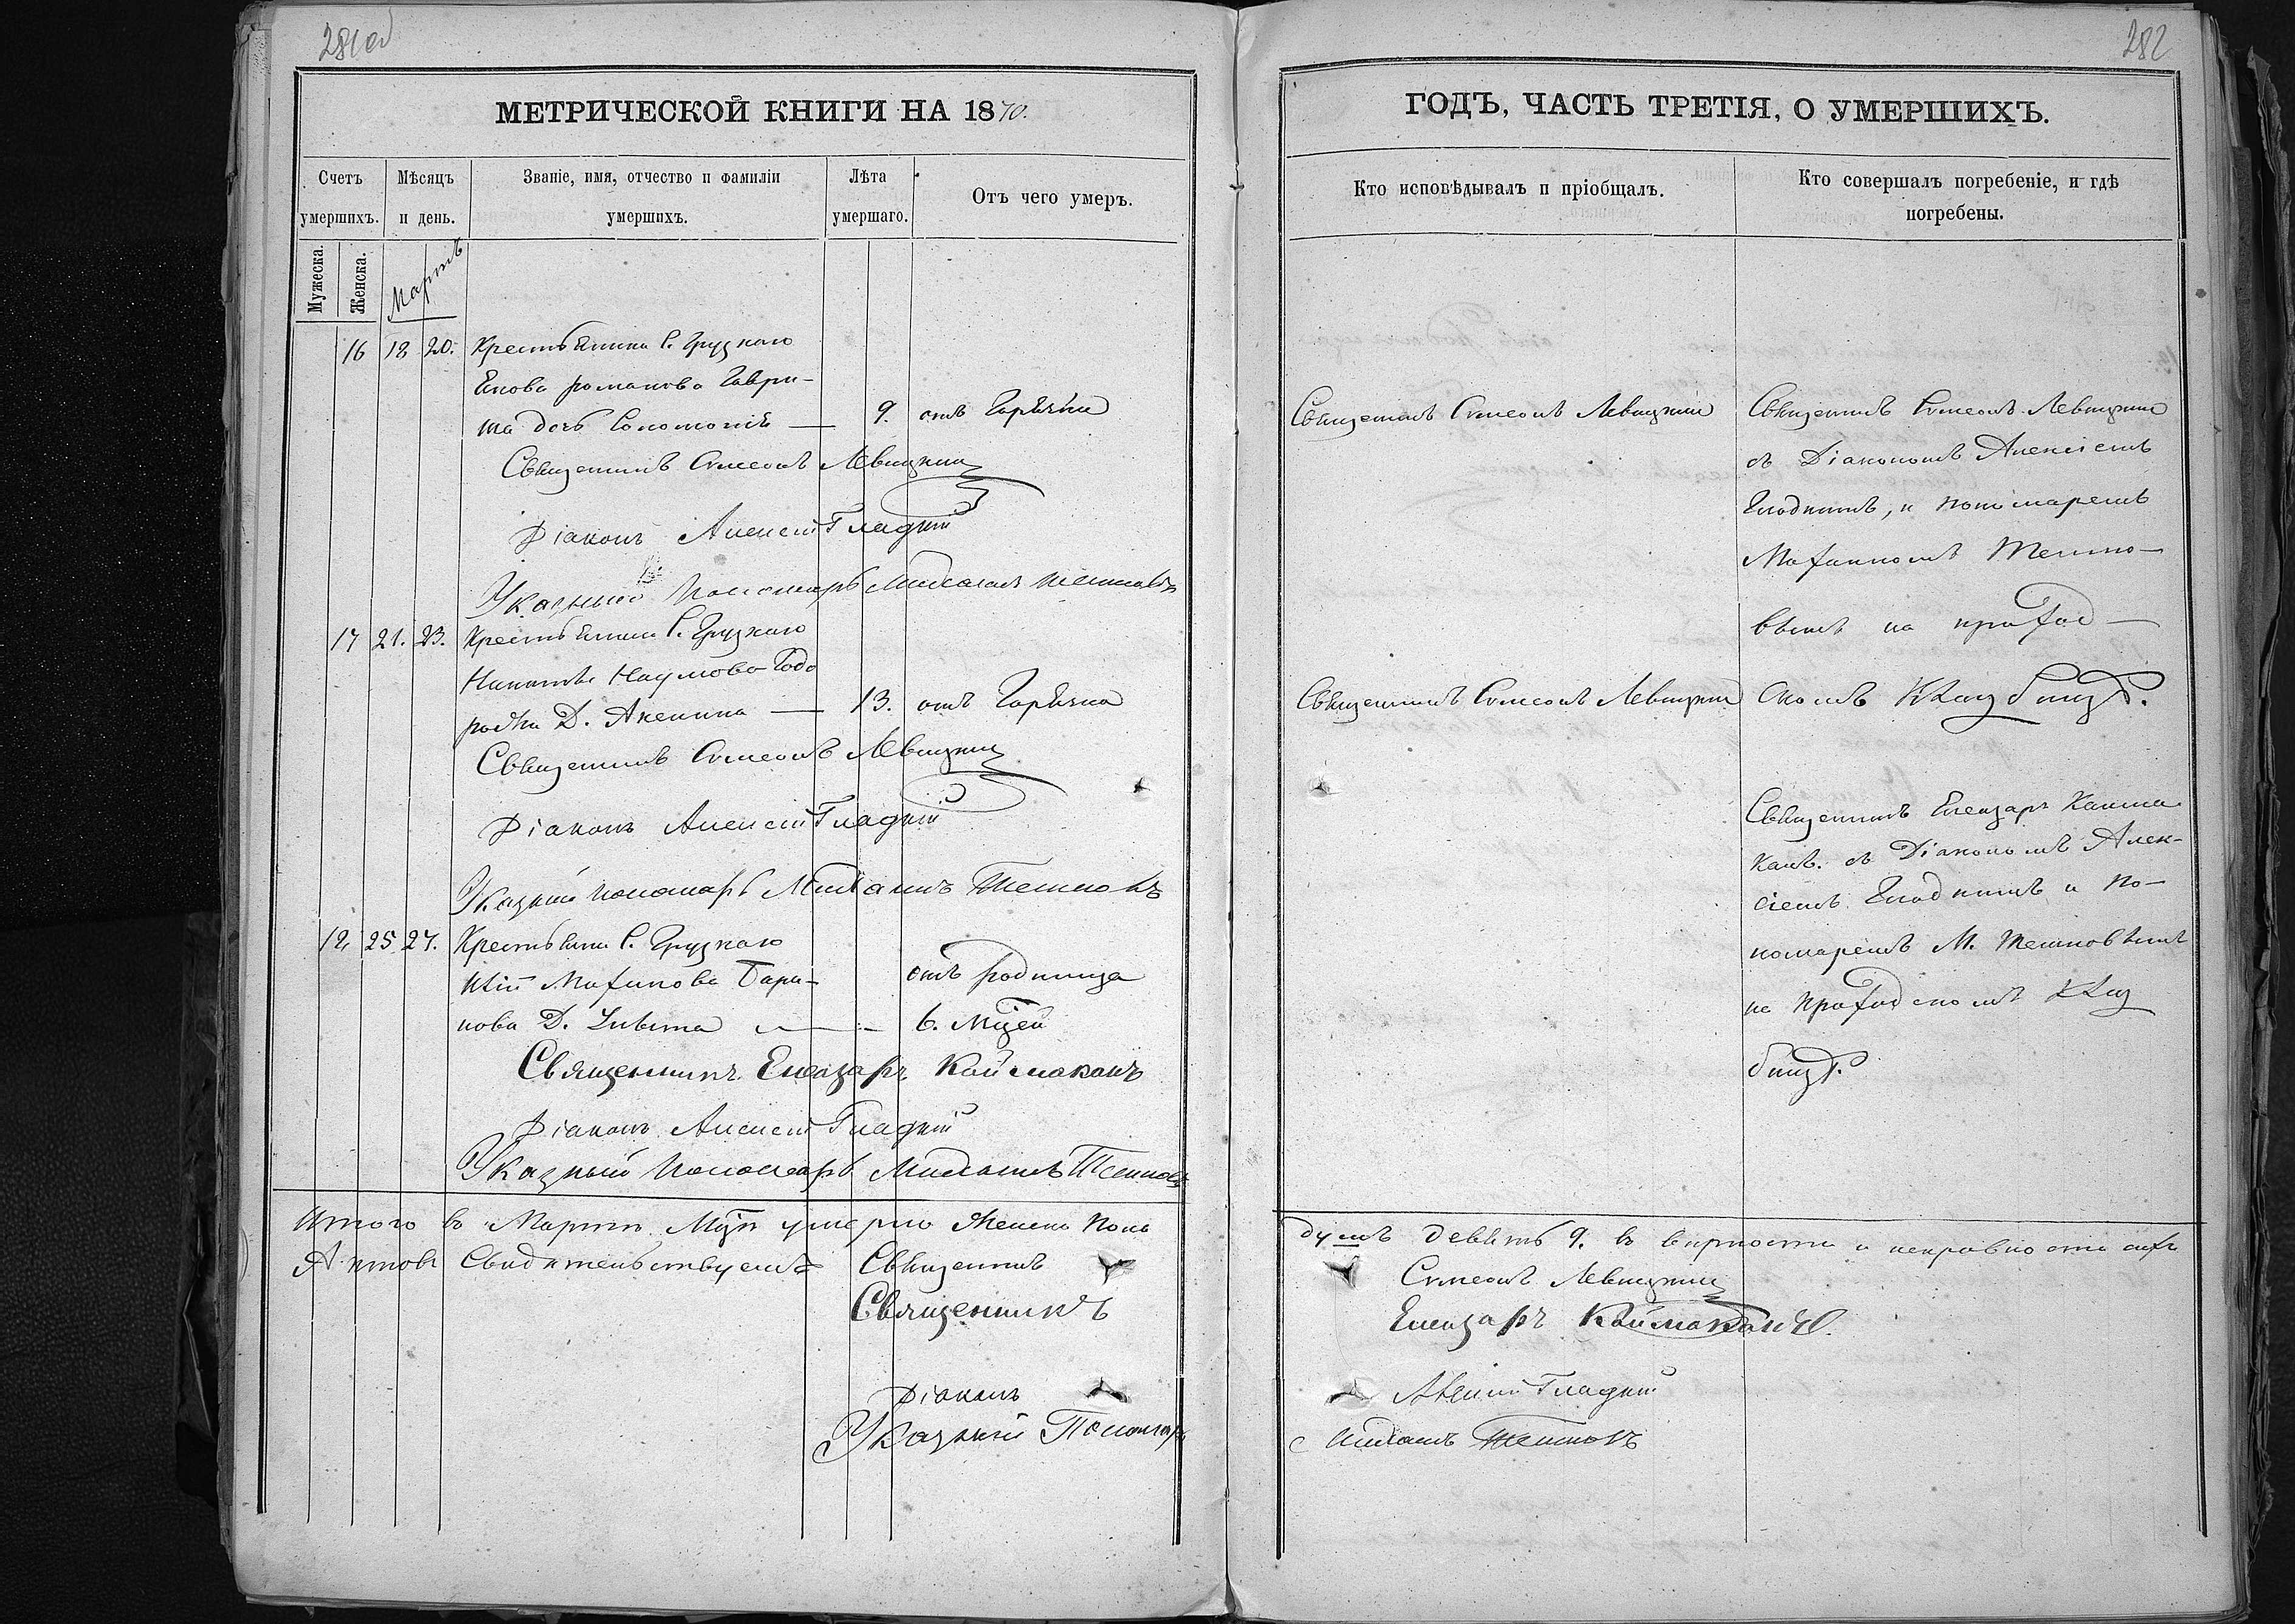 281 об
МЕТРИЧЕСКОЙ КНИГИ НА 1870.
Счетъ умершихъ.
Мѣсяцъ и день.
Званіе, имя, отчество и фамиліи умершихъ.
Лѣта умершаго.
Отъ чего умеръ.
Мужеска.
Женска.
Мартъ
16 18 20. Крестьянина С. Грузкаго
Якова романова Гаври-
ша дочь Соломонія — 9. отъ Горячки
Священникъ Симеонъ Левицкій
Діаконъ Алексій Гладкій
Указный Пономарь Михаилъ Тешновъ
17 21. 23. Крестьянина С. Грузкаго
Наумова Годо
рожа Д. Акенина — 13. отъ Горячка
Священникъ Симеонъ Левицкій
Діаконъ Алексій Гладкій
Указный пономарь Михаилъ Тешновъ
12, 25 27. Крестьянин С. Грузкаго
Бара-
нова Д. отъ родимца
6. Мцей
Священникъ Елеазаръ Каймаканъ
Діаконъ Алексій Гладкій
Указный Пономарь Михаилъ Тешновъ
Итого въ Мартѣ Мцѣ умерло Женска пола
Актовъ Свидѣтельствуемъ Священникъ
Священникъ
Діаконъ
Указный Пономарь
282
ГОДЪ, ЧАСТЬ ТРЕТІЯ, О УМЕРШИХЪ.
Кто исповѣдывалъ и пріобщалъ.
Кто совершалъ погребеніе, и гдѣ погребены.
Священникъ Симеонъ Левицкій
Священникъ Симеонъ Левицкій
съ Діакономъ Алексіемъ
Гладкимъ, и пономаремъ
Тешно-
вымъ на приход-
Священникъ Симеонъ Левицкій
скомъ Кладбищѣ.
Священникъ Елеазаръ Кайма
канъ. съ Діакономъ Алек-
сіемъ Гладкимъ и По-
номаремъ М. Тешновымъ
на приходскомъ Клад
бищѣ.
душъ девять 9. въ вѣрности и исправности сихъ
Симеонъ Левицкій
Елеазаръ Каймаканъ.
Алексій Гладкій
Михаилъ Тешновъ